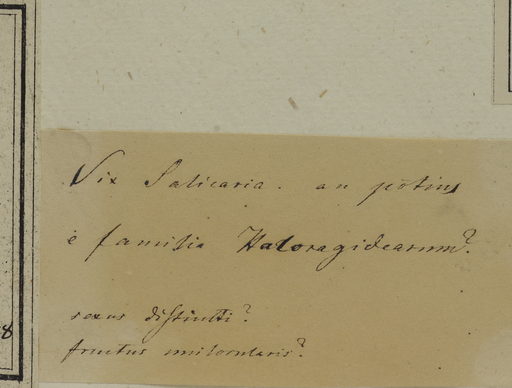 Vix Salicaria. an potius
è familia Haloragidearum?
sexus distincti?
fructus unilocularis?
8